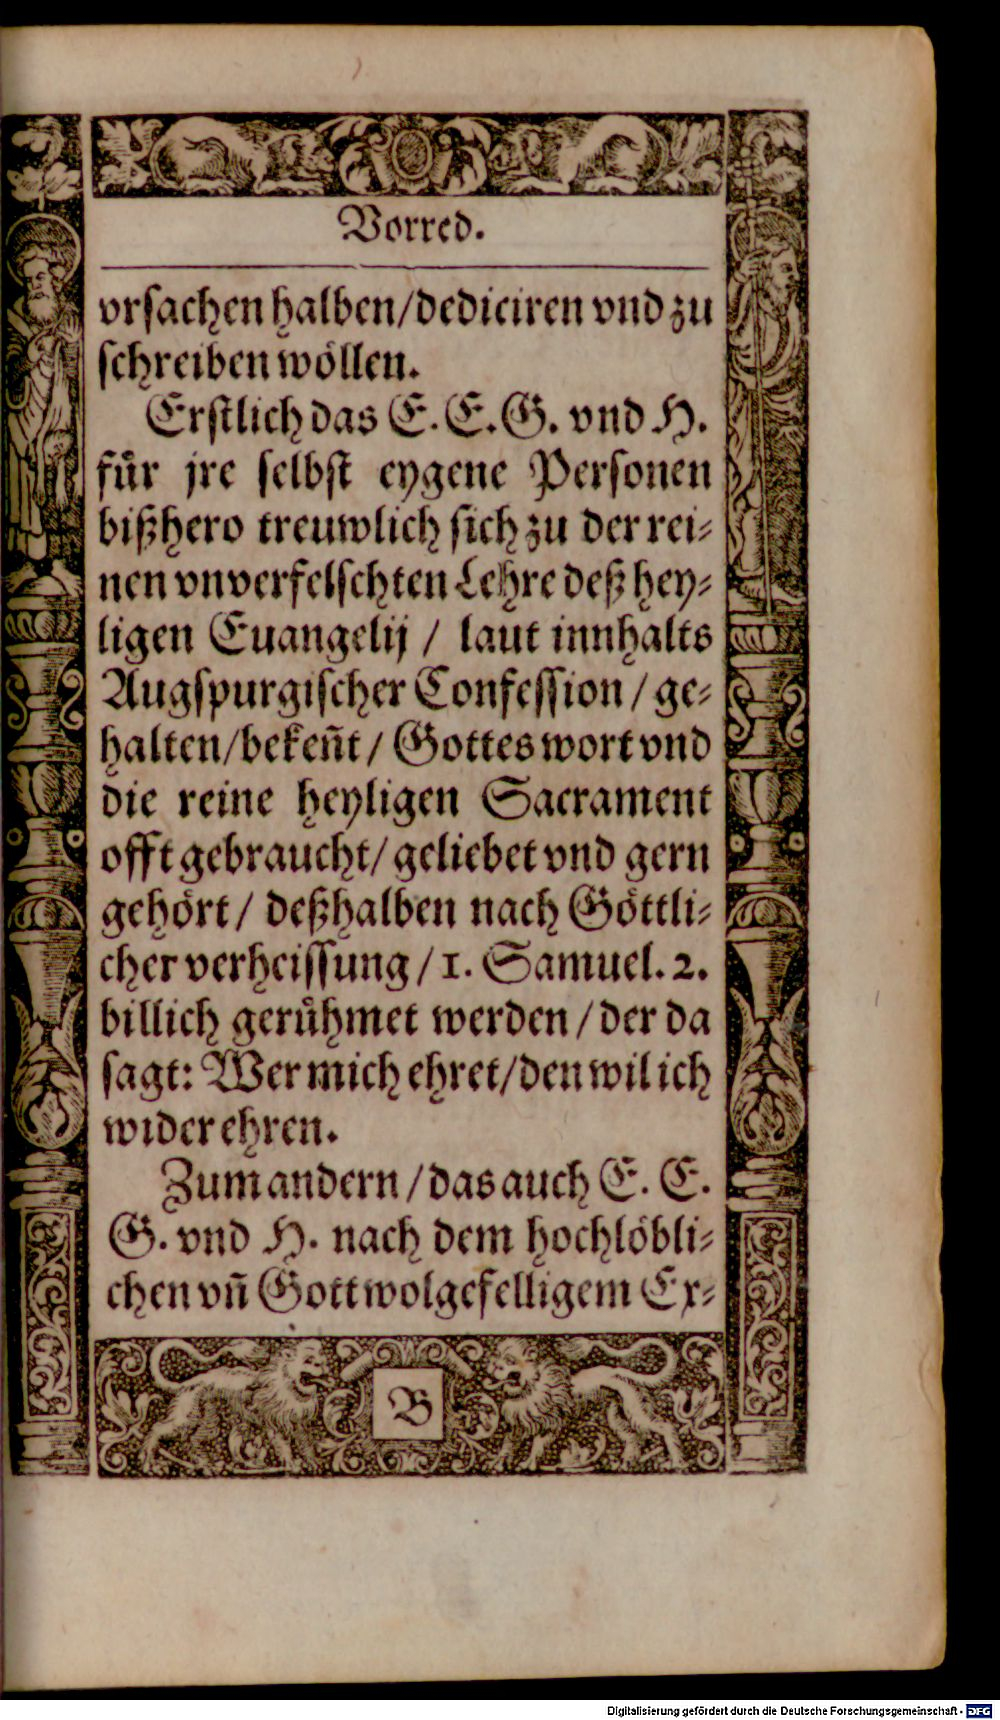 Vorred.
vrsachen halben/dediciren vnd zu
schreiben wöllen.
Erstlich das E. E. G. vnd H.
fuͤr jre selbst eygene Personen
bißhero treuwlich sich zu der rei⸗
nen vnverfelschten Lehre deß hey⸗
ligen Euangelij / laut innhalts
Augspurgischer Confession / ge⸗
halten/bekeñt / Gottes wort vnd
die reine heyligen Sacrament
offt gebraucht/ geliebet vnd gern
gehört / deßhalben nach Göttli⸗
cher verheissung / 1. Samuel. 2.
billich geruͤhmet werden / der da
sagt: Wer mich ehret/den wil ich
wider ehren.
Zum andern / das auch E. E.
G. vnd H. nach dem hochlöbli⸗
chen vñ Gott wolgefelligem Ex⸗
B
Digitalisierung gefördert durch die Deutsche Forschungsgemeinschaft - DFG